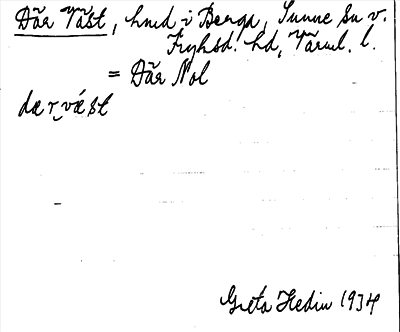 Där Väst, hmd i Berga, Sunne sn v.
Fryksd. hd, Värml. l.
= Där Nol
dær̬ vást
Greta Hedin 1934